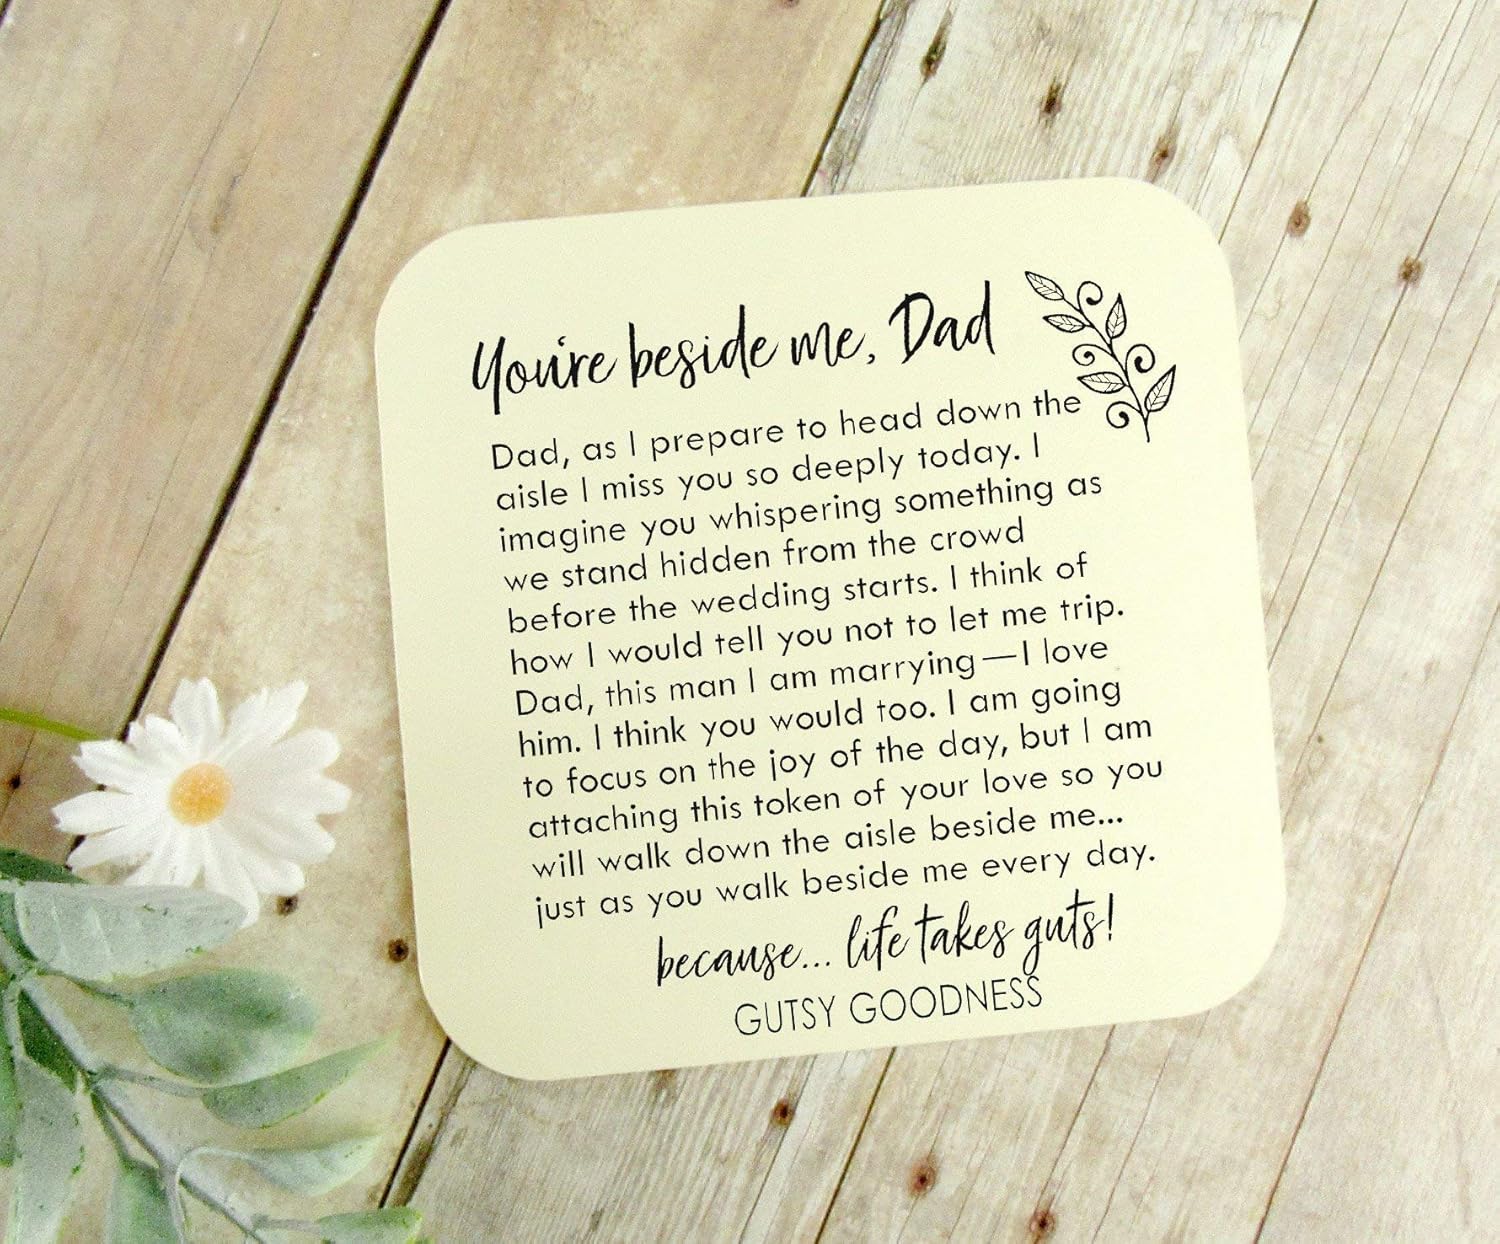 You're beside me, Dad
Dad, as I prepare to head down the
aisle I miss you so deeply today. I
imagine you whispering something as
we stand hidden from the crowd
before the wedding starts. I think of
how I would tell you not to let me trip.
Dad, this man I am marrying—I love
him. I think you would too. I am going
to focus on the joy of the day, but I am
attaching this token of your love so you
will walk down the aisle beside me...
just as you walk beside me every day.
because... life takes guts!
GUTSY GOODNESS